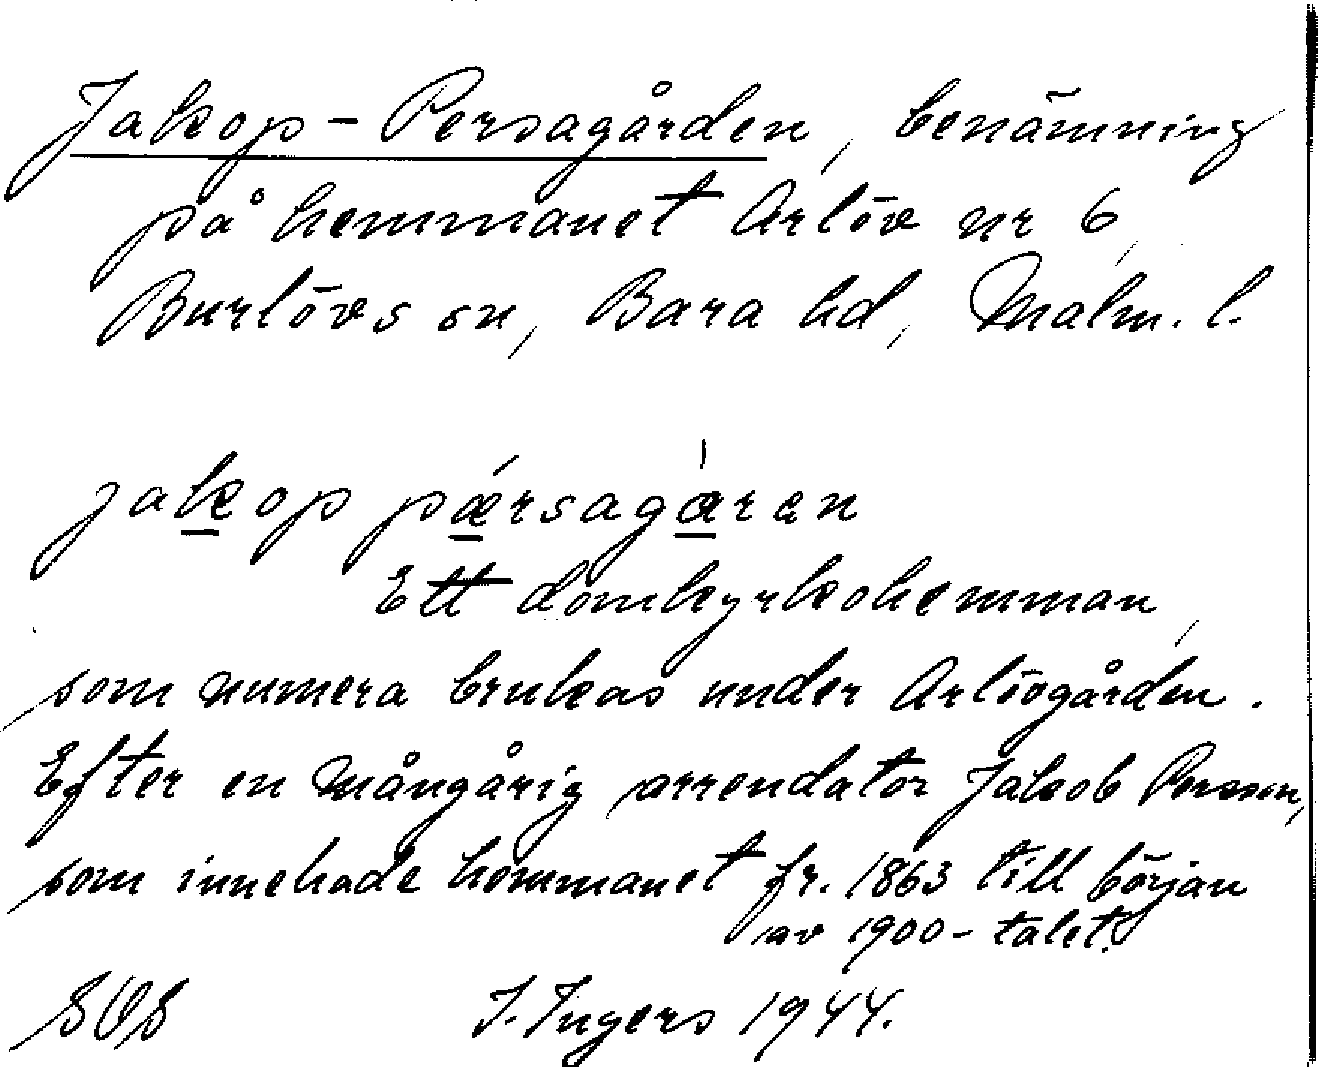 Jakop-Persagården, benämning
på hemmanet Arlöv nr 6,
Burlövs sn, Bara hd, Malm. l.
jakop pǽrsagàren
Ett domkyrkohemman,
som numera brukas under Arlövgården.
Efter en mångårig arrendator Jakob Persson,
som innehade hemmanet fr. 1863 till början
av 1900-talet.
SOS J. Ingers 1944.